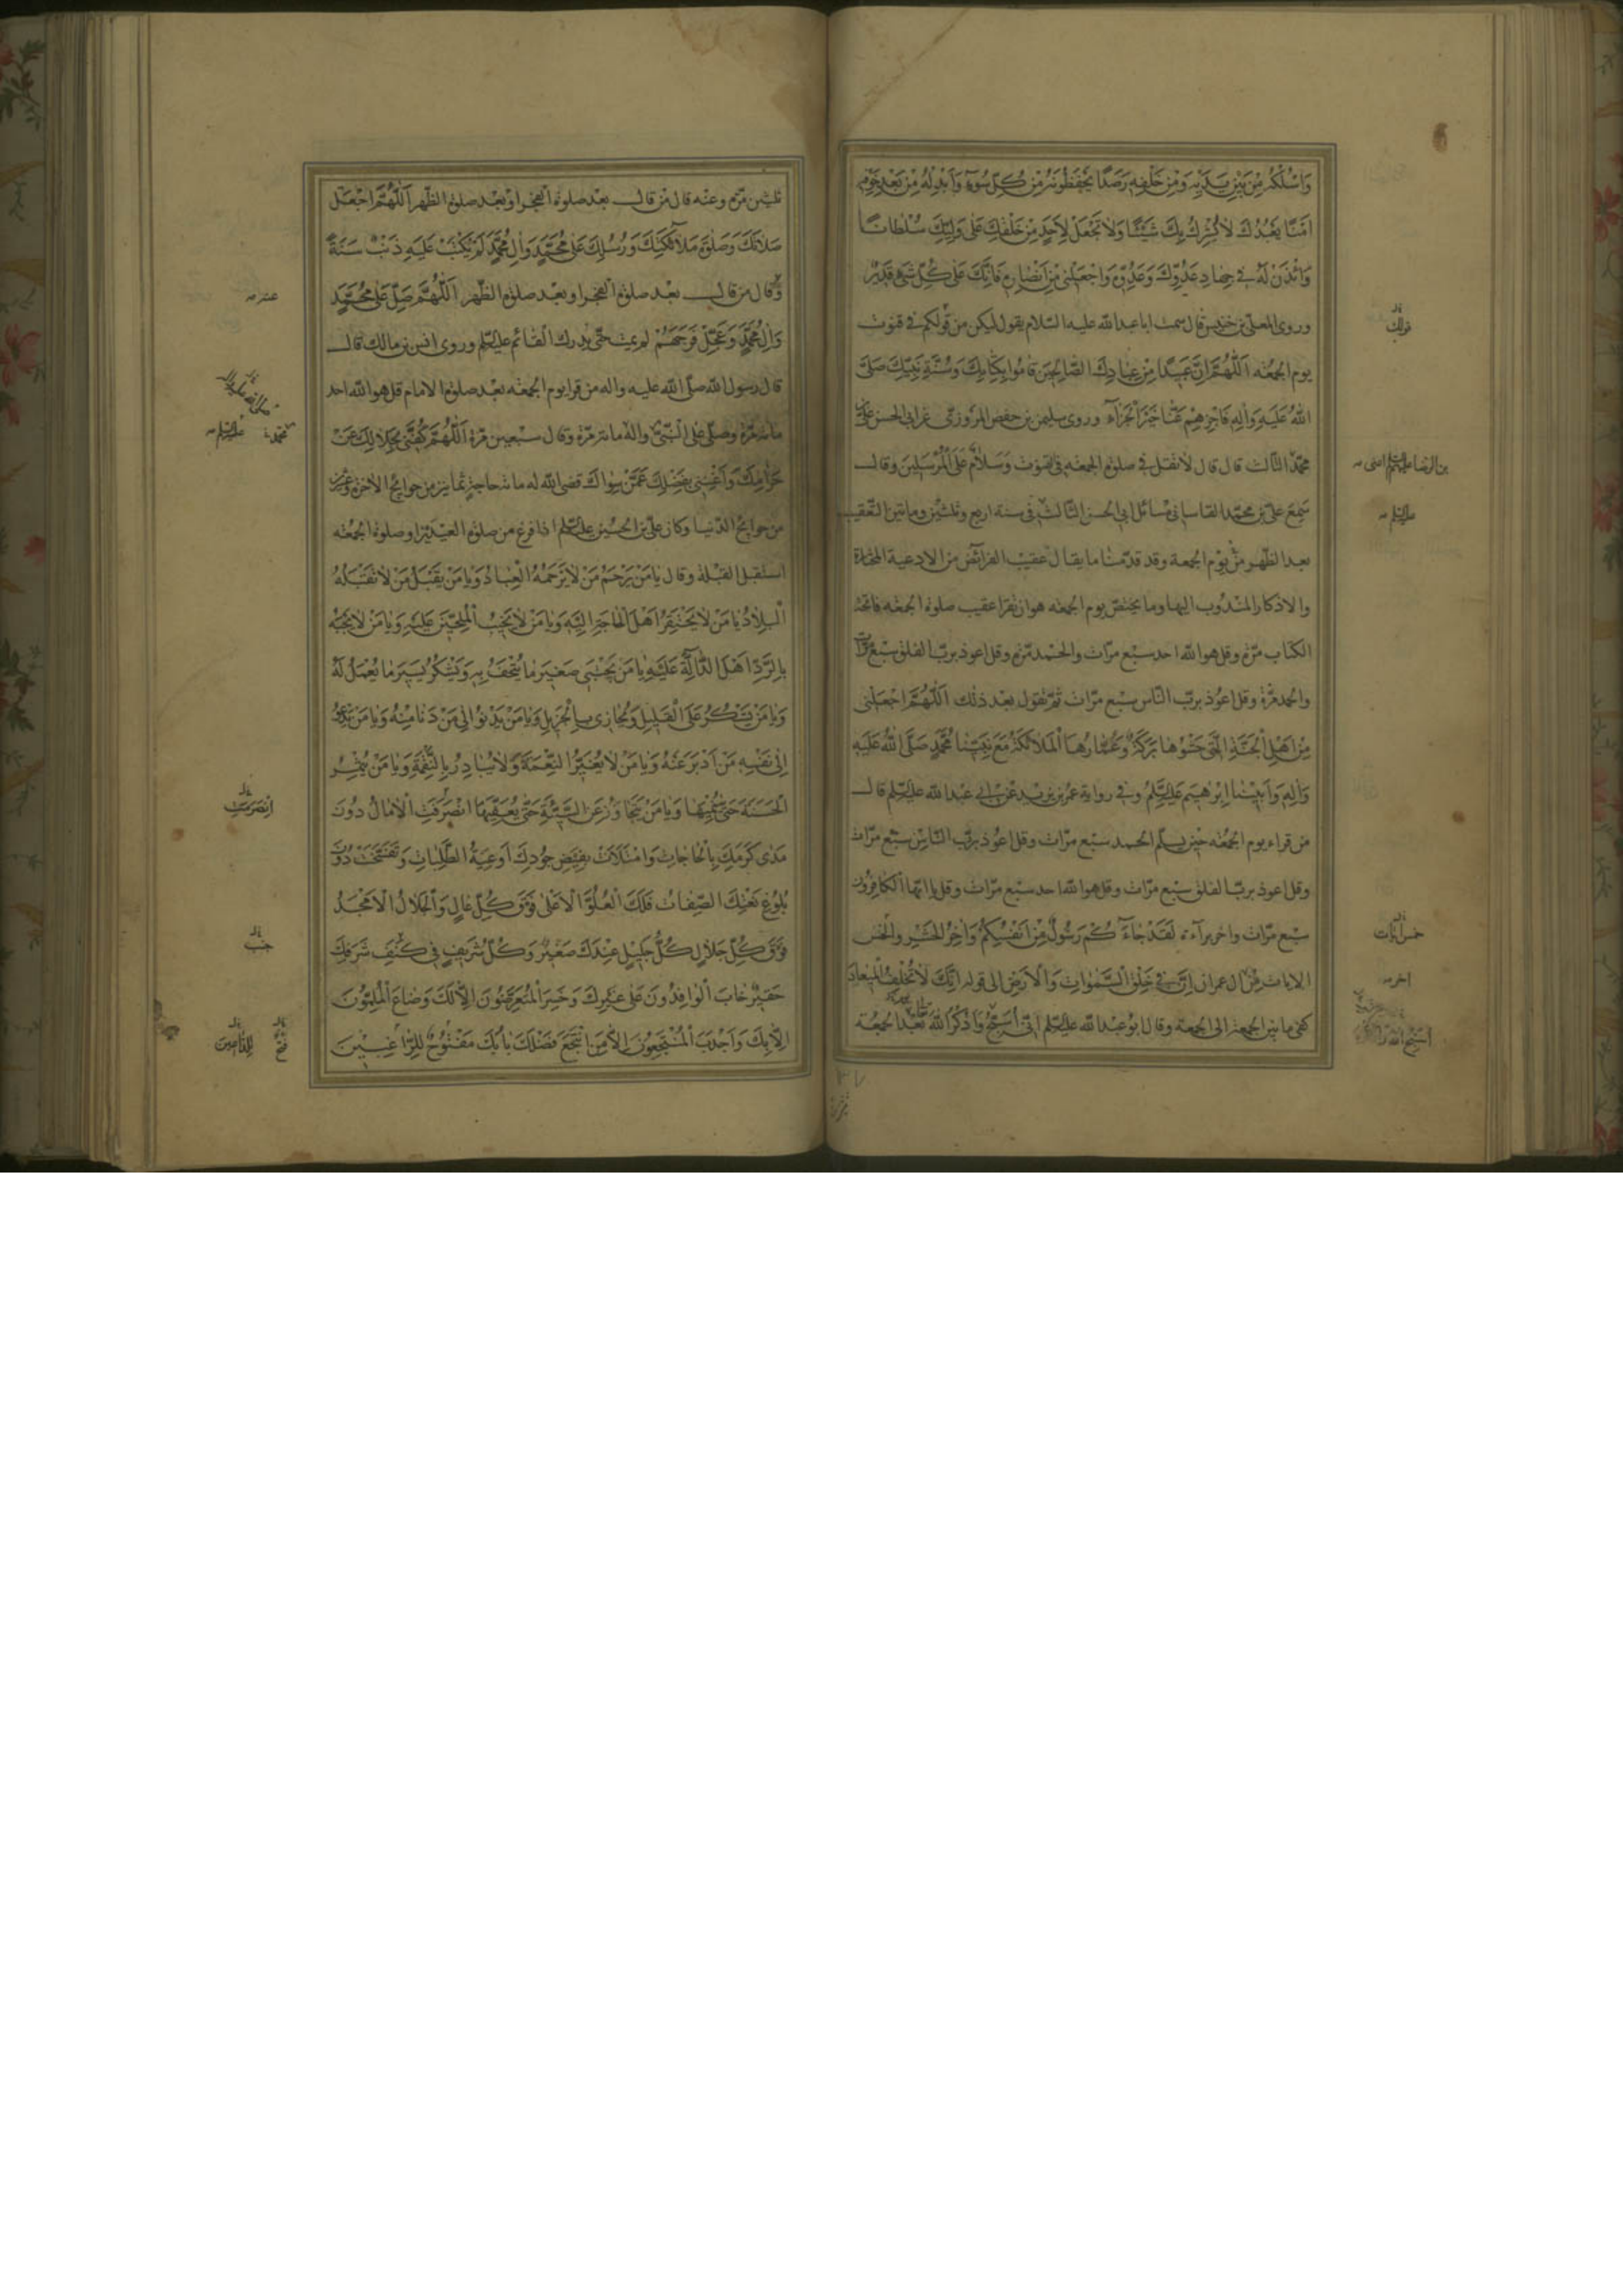 وَاسْلُكْهُ مِنْ بَيْنِ يَدَيْهِ وَمِنْ خَلْفِهِ رَصَدًا يَحْفَظُونَهُ مِنْ كُلِّ سُوءٍ وَاَبْدِلْهُ مِنْ بَعْدِ خَوْفِهِ
اَمْنًا يَعْبُدُكَ لَا يُشْرِكُ بِكَ شَيْئًا وَلَا تَجْعَلْ لِاَحَدٍ مِنْ خَلْقِكَ عَلٰى وَلِيِّكَ سُلْطَانًا
وَائْذَنْ لَهُ فِي جِهَادِ عَدُوِّكَ وَعَدُوِّهِ وَاجْعَلْنِي مِنْ اَنْصَارِهِ فَاِنَّكَ عَلٰى كُلِّ شَيْءٍ قَدِيرٌ
وروى المعلى بن خنيس قال سمعت ابا عبد الله عليه السلام يقول ليكن من قولكم في قنوت
يوم الجمعة اَللّٰهُمَّ اِنَّ عَبِيدًا مِنْ عِبَادِكَ الصَّالِحِينَ قَامُوا بِكِتَابِكَ وَسُنَّةِ نَبِيِّكَ صَلَّى
اللهُ عَلَيْهِ وَاٰلِهِ فَاجْزِهِمْ عَنَّا خَيْرَ الْجَزَاءِ وروى سليمن بن حفص المروزي عن ابي الحسن علي
محمد الثالث قال قال لا تقل في صلوة الجمعة في القنوت وَسَلَامٌ عَلَى الْمُرْسَلِينَ وقال
سمع علي بن محمد القاساني مسائل ابي الحسن الثالث في سنة اربع وثلثين ومائتين التعقيب
بعد الظهر من يوم الجمعة وقد قدمنا ما يقال عقيب الفرائض من الادعية المختارة
والاذكار المندوب اليها وما يختص يوم الجمعة هو ان يقرا عقيب صلوة الجمعة فاتحة
الكتاب مرة وقل هو الله احد سبع مرات والحمد مرة وقل اعوذ برب الفلق سبع مرات
والحمد مرة وقل اعوذ برب الناس سبع مرات ثم تقول بعد ذلك اَللّٰهُمَّ اجْعَلْنِي
مِنْ اَهْلِ الْجَنَّةِ الَّتِي حَشْوُهَا بَرَكَةٌ وَعُمَّارُهَا الْمَلَائِكَةُ مَعَ نَبِيِّنَا مُحَمَّدٍ صَلَّى اللهُ عَلَيْهِ
وَاٰلِهِ وَاَبِينَا اِبْرٰهِيمَ عَلَيْهِ السَّلَمُ وفي رواية عمر بن يزيد عن ابي عبد الله عليه السلم قال
من قراء يوم الجمعة حين يسلم الحمد سبع مرات وقل اعوذ برب الناس سبع مرات
وقل اعوذ برب الفلق سبع مرات وقل هو الله احد سبع مرات وقل يا ايها الكافرون
سبع مرات واخر براءة لَقَدْ جَاءَكُمْ رَسُولٌ مِنْ اَنْفُسِكُمْ وَاٰخِرُ الحَشْرِ والخمس
الايات من ال عمران اِنَّ فِي خَلْقِ السَّمٰوَاتِ وَالْاَرْضِ الى قوله اِنَّكَ لَا تُخْلِفُ الْمِيعَادَ
كفي ما بين الجمعة الى الجمعة وقال ابو عبد الله عليه السلم
قولك
بن الرضا عليهم السلم
عليه السلم
خمس ايات
اخر
ثلثين مرة وعنه قال من قال بعد صلوة الفجر او بعد صلوة الظهر اَللّٰهُمَّ اجْعَلْ
صَلَاتَكَ وَصَلٰوةَ مَلَائِكَتِكَ وَرُسُلِكَ عَلٰى مُحَمَّدٍ وَاٰلِ مُحَمَّدٍ لَمْ يُكْتَبْ عَلَيْهِ ذَنْبٌ سَنَةً
وقال من قال بعد صلوة الفجر او بعد صلوة الظهر اَللّٰهُمَّ صَلِّ عَلٰى مُحَمَّدٍ
وَاٰلِ مُحَمَّدٍ وَعَجِّلْ فَرَجَهُمْ لم يمت حتى يدرك القائم عليه السلم وروى انس بن مالك قال
قال رسول الله صلى الله عليه واله من قرا يوم الجمعة بعد صلوة الامام قل هو الله احد
مائة مرة وصلى على النبي واله مائة مرة وقال سبعين مرة اَللّٰهُمَّ اكْفِنِي بِحَلَالِكَ عَنْ
حَرَامِكَ وَاَغْنِنِي بِفَضْلِكَ عَمَّنْ سِوَاكَ قضى الله له مائة حاجة ثمانين من حوائج الاخرة وعشرين
من حوائج الدنيا وكان علي بن الحسين عليه السلم اذا فرغ من صلوة العيدين او صلوة الجمعة
استقبل القبلة وقال يَا مَنْ يَرْحَمُ مَنْ لَا يَرْحَمُهُ الْعِبَادُ وَيَا مَنْ يَقْبَلُ مَنْ لَا تَقْبَلُهُ
الْبِلَادُ يَا مَنْ لَا يَحْتَقِرُ اَهْلَ الْحَاجَةِ اِلَيْهِ وَيَا مَنْ لَا يُخَيِّبُ الْمُلِحِّينَ عَلَيْهِ وَيَا مَنْ لَا يَجْبَهُ
بِالرَّدِّ اَهْلَ الدَّالَّةِ عَلَيْهِ يَا مَنْ يَجْتَبِي صَغِيرَ مَا يُتْحَفُ بِهِ وَيَشْكُرُ يَسِيرَ مَا يُعْمَلُ لَهُ
وَيَا مَنْ يَشْكُرُ عَلَى الْقَلِيلِ وَيُجَازِي بِالْجَزِيلِ وَيَا مَنْ يَدْنُو اِلٰى مَنْ دَنَا مِنْهُ وَيَا مَنْ يَدْعُو
اِلٰى نَفْسِهِ مَنْ اَدْبَرَ عَنْهُ وَيَا مَنْ لَا يُغَيِّرُ النِّعْمَةَ وَلَا يُبَادِرُ بِالنَّقِمَةِ وَيَا مَنْ يُثْمِرُ
الْحَسَنَةَ حَتّٰى يُنْمِيَهَا وَيَا مَنْ يَتَجَاوَزُ عَنِ السَّيِّئَةِ حَتّٰى يُعَفِّيَهَا انْصَرَفَتِ الْاٰمَالُ دُونَ
مَدٰى كَرَمِكَ بِالْحَاجَاتِ وَامْتَلَأَتْ بِفَيْضِ جُودِكَ اَوْعِيَةُ الطَّلِبَاتِ وَتَفَسَّخَتْ دُونَ
بُلُوغِ نَعْتِكَ الصِّفَاتُ فَلَكَ الْعُلُوُّ الْاَعْلٰى فَوْقَ كُلِّ عَالٍ وَالْجَلَالُ الْاَمْجَدُ
فَوْقَ كُلِّ جَلَالٍ كُلُّ جَلِيلٍ عِنْدَكَ صَغِيرٌ وَكُلُّ شَرِيفٍ فِي كَنَفِ شَرَفِكَ
حَقِيرٌ خَابَ الْوَافِدُونَ عَلٰى غَيْرِكَ وَخَسِرَ الْمُتَعَرِّضُونَ اِلَّا لَكَ وَضَاعَ الْمُلِمُّونَ
اِلَّا بِكَ وَاَجْدَبَ الْمُنْتَجِعُونَ اِلَّا مَنِ انْتَجَعَ فَضْلَكَ بَابُكَ مَفْتُوحٌ لِلرَّاغِبِينَ
عشر
صلى الله عليه واله
محمد عليه السلم
جنب